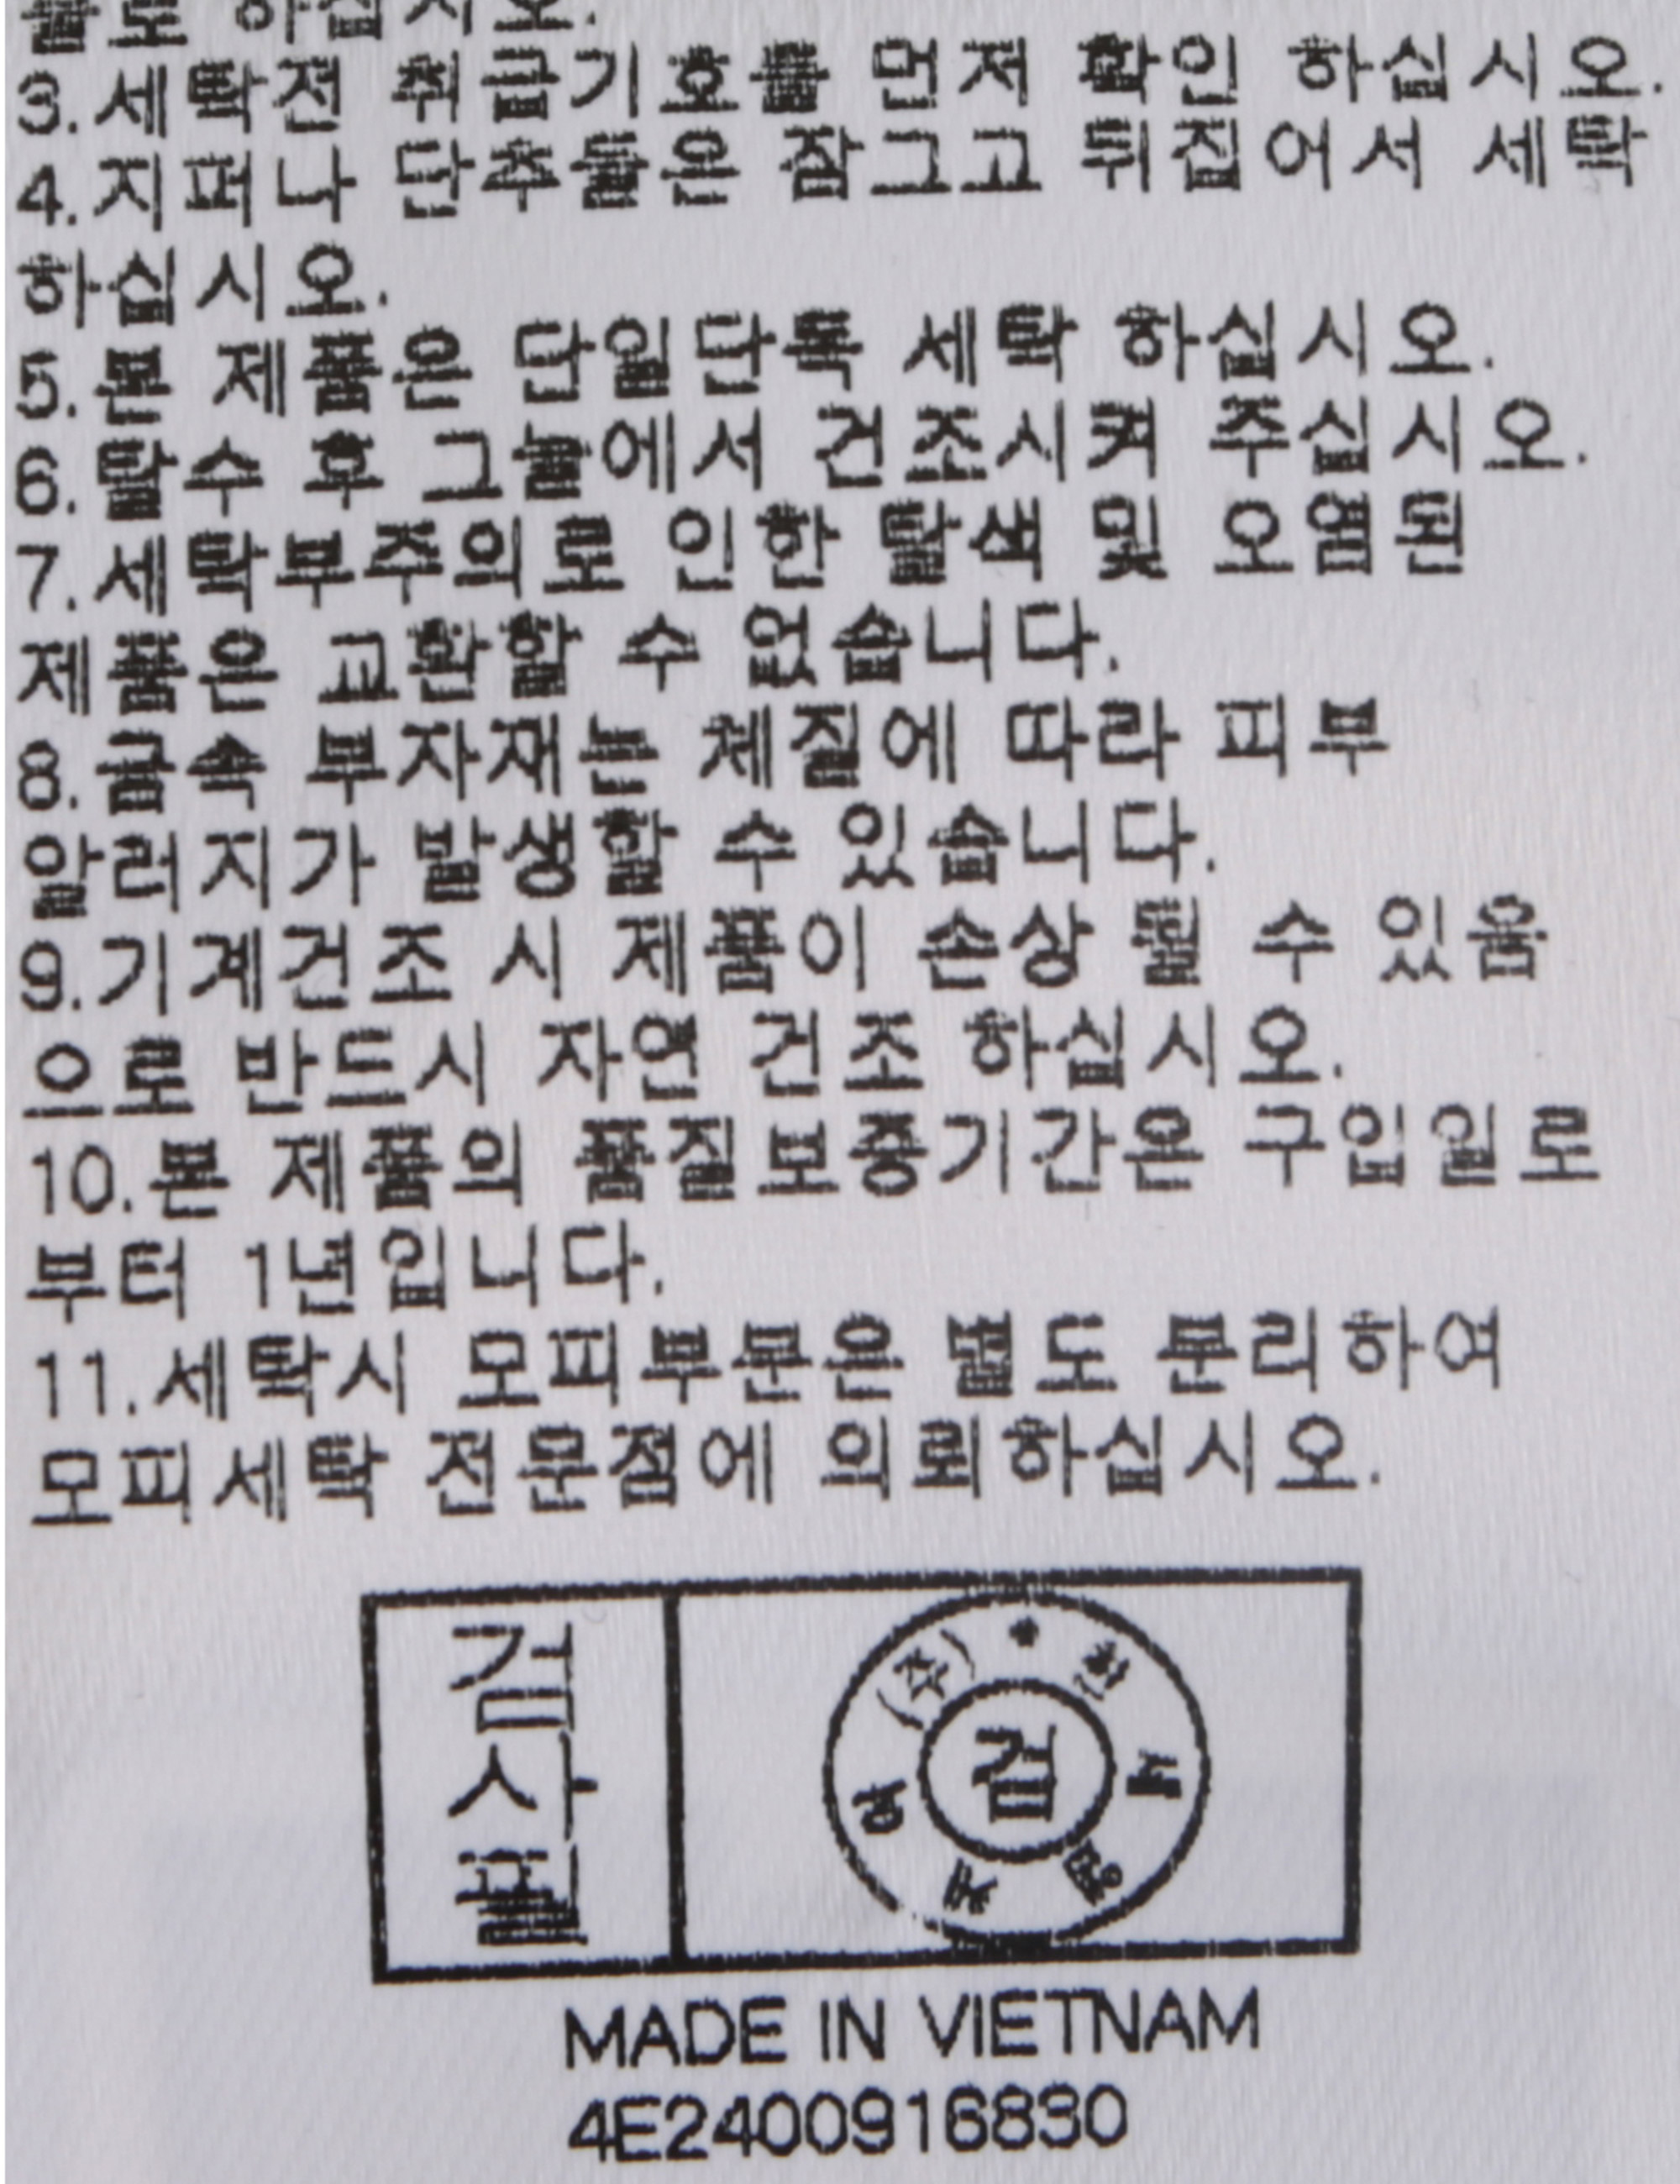 하십시오.
3.세탁전 취급기호를 먼저 확인 하십시오.
4.지퍼나 단추들은 잠그고 뒤집어서 세탁
하십시오.
5.본 제품은 단일단독 세탁 하십시오.
6.탈수 후 그늘에서 건조시켜 주십시오.
7.세탁부주의로 인한 탈색 및 오염된
제품은 교환할 수 없습니다.
8.금속 부자재는 체질에 따라 피부
알러지가 발생할 수 있습니다.
9.기계건조 시 제품이 손상 될 수 있음
으로 반드시 자연 건조 하십시오.
10.본 제품의 품질보증기간은 구입일로
부터 1년입니다.
11.세탁시 모피부분은 별도 분리하여
모피세탁 전문점에 의뢰하십시오.
검사필
(주)
검
MADE IN VIETNAM
4E2400916830